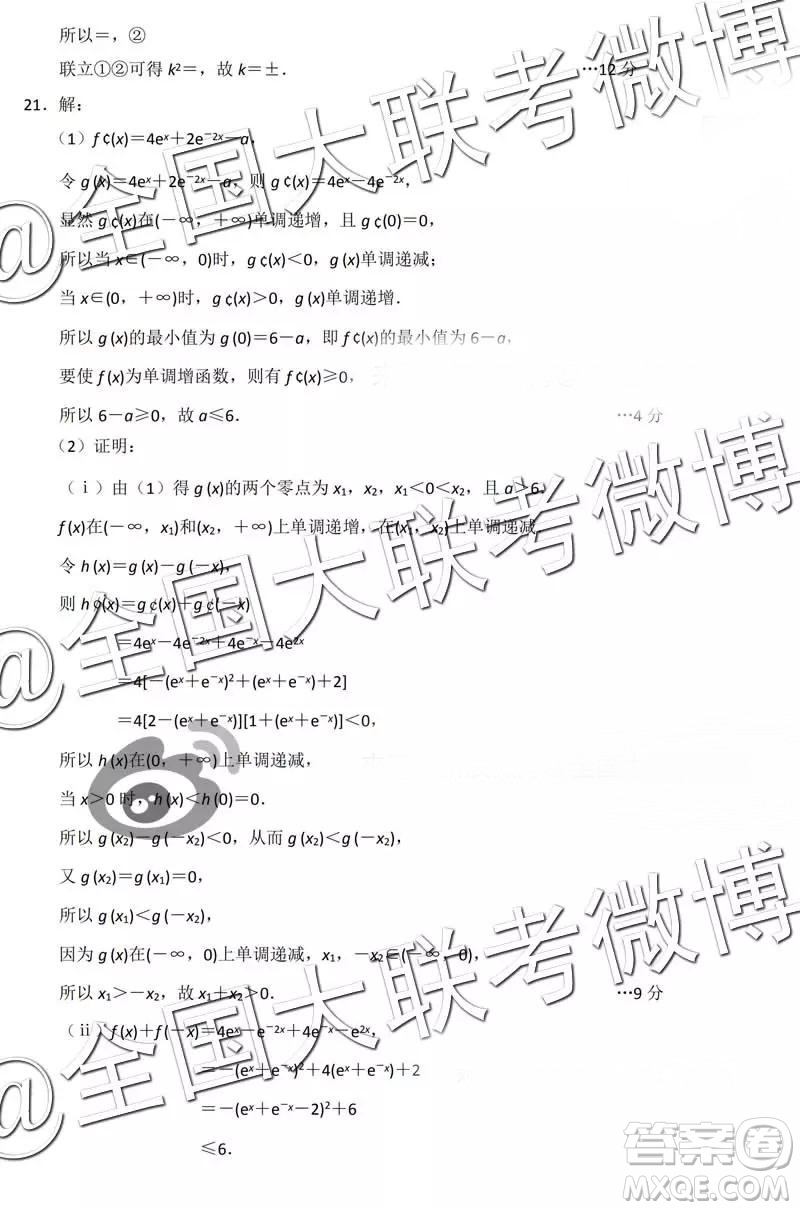 所以＝，②
联立①②可得 k²＝，故 k＝±． …12 分
21．解：
（1）f ¢(x)＝4eˣ＋2e⁻²ˣ－a，
令 g (x)＝4eˣ＋2e⁻²ˣ－a，则 g ¢(x)＝4eˣ－4e⁻²ˣ，
显然 g ¢(x)在(－∞，＋∞)单调递增，且 g ¢(0)＝0，
所以当 x∈(－∞，0)时，g ¢(x)＜0，g (x)单调递减；
当 x∈(0，＋∞)时，g ¢(x)＞0，g (x)单调递增．
所以 g (x)的最小值为 g (0)＝6－a，即 f ¢(x)的最小值为 6－a，
要使 f (x)为单调增函数，则有 f ¢(x)≥0，
所以 6－a≥0，故 a≤6． …4 分
（2）证明：
（ⅰ）由（1）得 g (x)的两个零点为 x₁，x₂，x₁＜0＜x₂，且 a＞6，
f (x)在(－∞，x₁)和(x₂，＋∞)上单调递增，在(x₁，x₂)上单调递减，
令 h (x)＝g (x)－g (－x)，
则 h ¢(x)＝g ¢(x)＋g ¢(－x)
＝4eˣ－4e⁻²ˣ＋4e⁻ˣ－4e²ˣ
＝4[－(eˣ＋e⁻ˣ)²＋(eˣ＋e⁻ˣ)＋2]
＝4[2－(eˣ＋e⁻ˣ)][1＋(eˣ＋e⁻ˣ)]＜0，
所以 h (x)在(0，＋∞)上单调递减，
当 x＞0 时，h (x)＜h (0)＝0．
所以 g (x₂)－g (－x₂)＜0，从而 g (x₂)＜g (－x₂)，
又 g (x₂)＝g (x₁)＝0，
所以 g (x₁)＜g (－x₂)，
因为 g (x)在(－∞，0)上单调递减，x₁，－x₂∈(－∞，0)，
所以 x₁＞－x₂，故 x₁＋x₂＞0． …9 分
（ⅱ）f (x)＋f (－x)＝4eˣ－e⁻²ˣ＋4e⁻ˣ－e²ˣ，
＝－(eˣ＋e⁻ˣ)²＋4(eˣ＋e⁻ˣ)＋2
＝－(eˣ＋e⁻ˣ－2)²＋6
≤6．
@全国大联考微博
@全国大联考微博
@全国大联考微博
答案卷
MXQE.COM